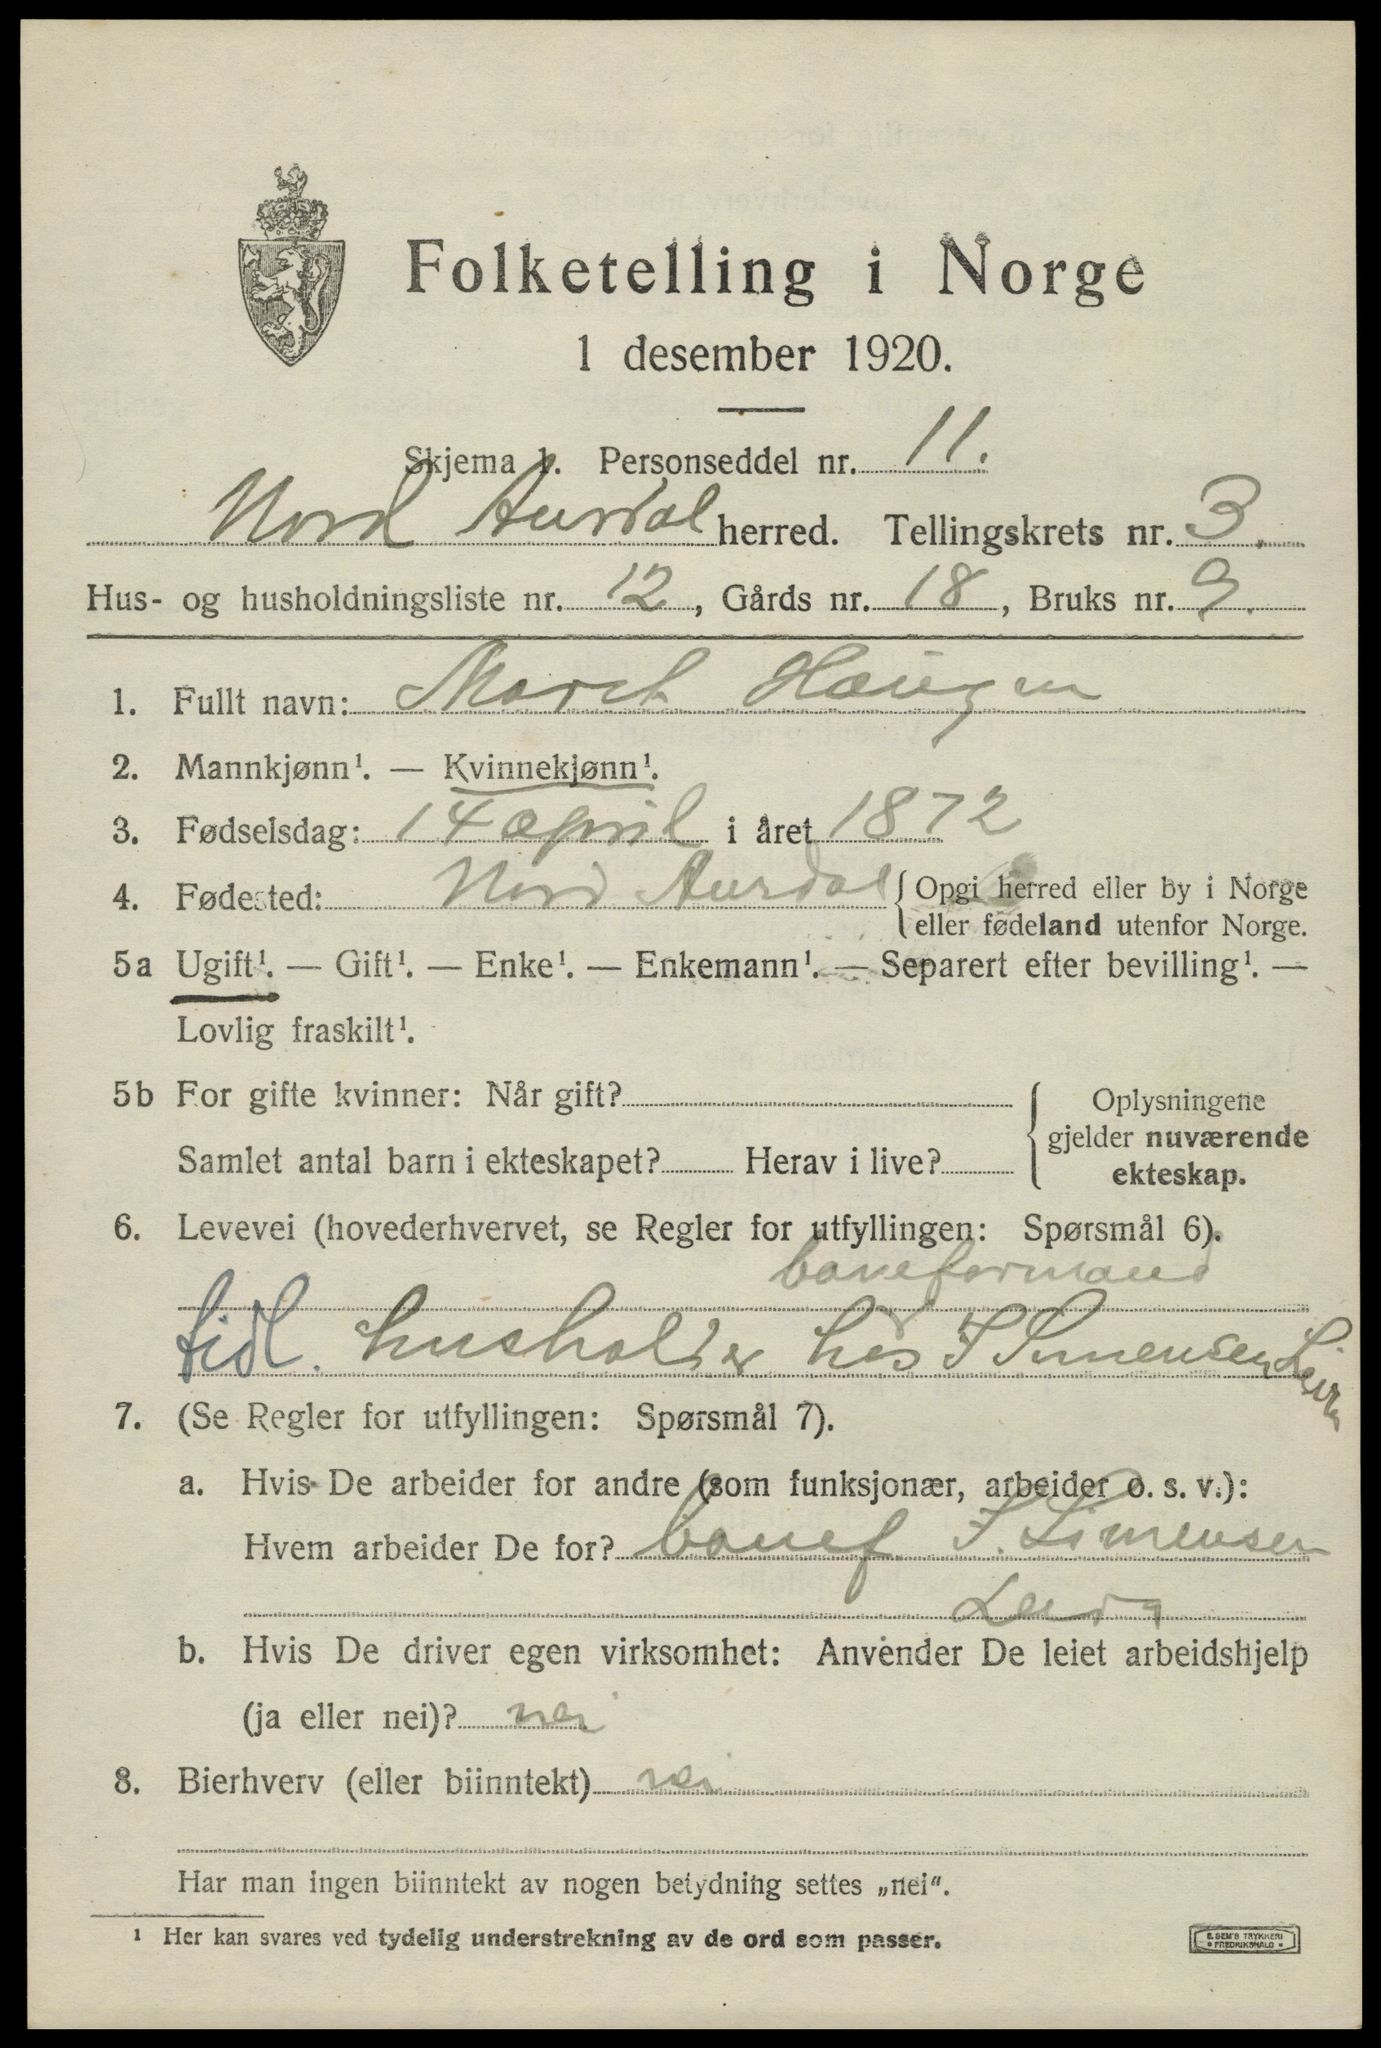 Folketelling i Norge
1 desember 1920.
Skjema 1. Personseddel nr. 11.
Nord Aurdal herred. Tellingskrets nr. 3.
Hus- og husholdningsliste nr. 12, Gårds nr. 18, Bruks nr. 9.
1. Fullt navn: Marit Haugen
2. Mannkjønn¹. — Kvinnekjønn¹.
3. Fødselsdag: 14 april i året 1872
4. Fødested: Nord Aurdal { Opgi herred eller by i Norge
eller fødeland utenfor Norge.
5a Ugift¹. — Gift¹. — Enke¹. — Enkemann¹. — Separert efter bevilling¹. —
Lovlig fraskilt¹.
5b For gifte kvinner: Når gift? { Oplysningene
gjelder nuværende
Samlet antal barn i ekteskapet? Herav i live? ekteskap.
6. Levevei (hovederhvervet, se Regler for utfyllingen: Spørsmål 6).
baneformand
tidl. husholder hos I Simensen Leira
7. (Se Regler for utfyllingen: Spørsmål 7).
a. Hvis De arbeider for andre (som funksjonær, arbeider o. s. v.):
Hvem arbeider De for? banef. I. Simensen
Leira
b. Hvis De driver egen virksomhet: Anvender De leiet arbeidshjelp
(ja eller nei)? nei
8. Bierhverv (eller biinntekt) nei
Har man ingen biinntekt av nogen betydning settes „nei".
¹ Her kan svares ved tydelig understrekning av de ord som passer.
E. SEM'S TRYKKERI
• FREDRIKSHALD •